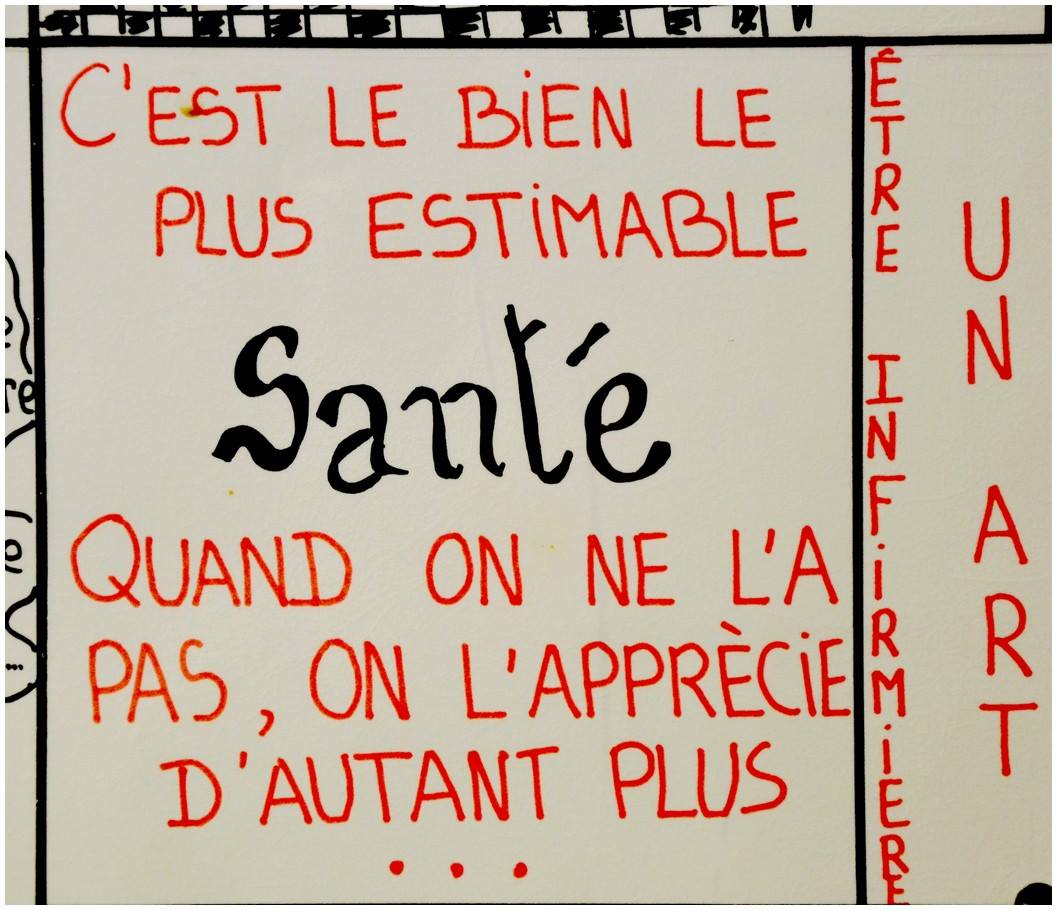 C'EST LE BIEN LE
PLUS ESTIMABLE
Santé
QUAND ON NE L'A
PAS, ON L'APPRÈCIE
D'AUTANT PLUS
...
ÊTRE INFIRMIERE
UN ART